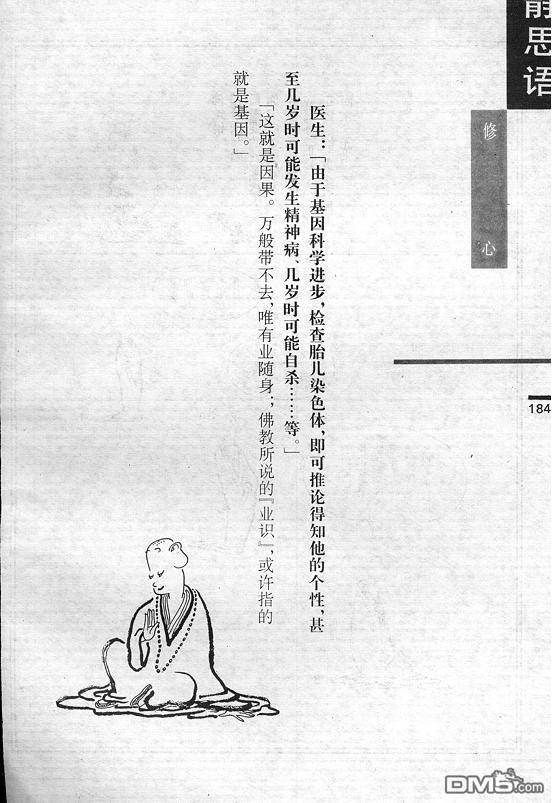 静思语
修心
184
医生：「由于基因科学进步，检查胎儿染色体，即可推论得知他的个性，甚
至几岁时可能发生精神病、几岁时可能自杀……等。」
「这就是因果。万般带不去，唯有业随身；佛教所说的『业识』，或许指的
就是基因。」
DM5.com